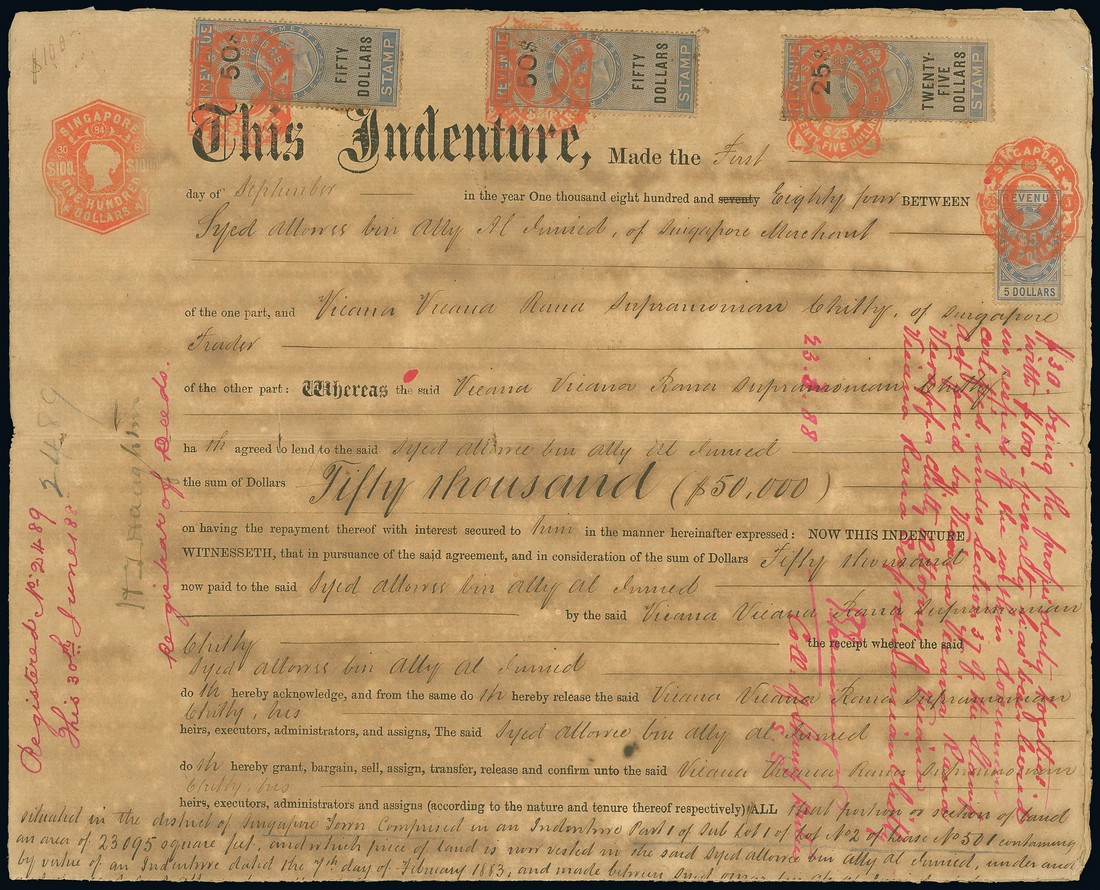 $100
INREVENUE 50$ FIFTY DOLLARS STAMP
50$ FIFTY DOLLARS STAMP
25$ TWENTY-FIVE DOLLARS STAMP
SINGAPORE
84
$100 $100
ONE HUNDRED DOLLARS
SINGAPORE
TWENTY FIVE DOLLARS
$25
SINGAPORE
REVENU
5 DOLLARS
This Indenture, Made the First
day of September in the year One thousand eight hundred and seventy Eighty four BETWEEN
Syed Allowee bin Ally Al Junied, of Singapore Merchant
of the one part, and Vicana Vicana Rana Supramonian Chitty, of Singapore
Trader
of the other part: Whereas the said Vicana Vicana Rana Supramonian Chitty
ha th agreed to lend to the said Syed Allowee bin Ally Al Junied
the sum of Dollars Fifty thousand ($50,000)
on having the repayment thereof with interest secured to him in the manner hereinafter expressed: NOW THIS INDENTURE
WITNESSETH, that in pursuance of the said agreement, and in consideration of the sum of Dollars Fifty thousand
now paid to the said Syed Allowee bin Ally Al Junied
by the said Vicana Vicana Rana Supramonian
Chitty the receipt whereof the said
Syed Allowee bin Ally Al Junied
do th hereby acknowledge, and from the same do th hereby release the said Vicana Vicana Rana Supramonian
Chitty, his
heirs, executors, administrators, and assigns, The said Syed Allowee bin Ally Al Junied
do th hereby grant, bargain, sell, assign, transfer, release and confirm unto the said Vicana Vicana Rana Supramonian
Chitty, his
heirs, executors, administrators and assigns (according to the nature and tenure thereof respectively) ALL that portion or section of land
situated in the district of Singapore Town Comprised in an Indenture Part 1 of Sub Lot 1 of Lot No 2 of Lease No 501 containing
an area of 23095 square feet, and which piece of land is now vested in the said Syed Allowee bin Ally Al Junied, under and
by virtue of an Indenture dated the 7th day of February 1883, and made between Syed
Registered No. 2489
This 30th June 88
2489
Registrar of Deeds.
23.8.88
$30. being the proper duty together
with $100 penalty has been levied
in respect of the within document
under Section 37 of the Stamp